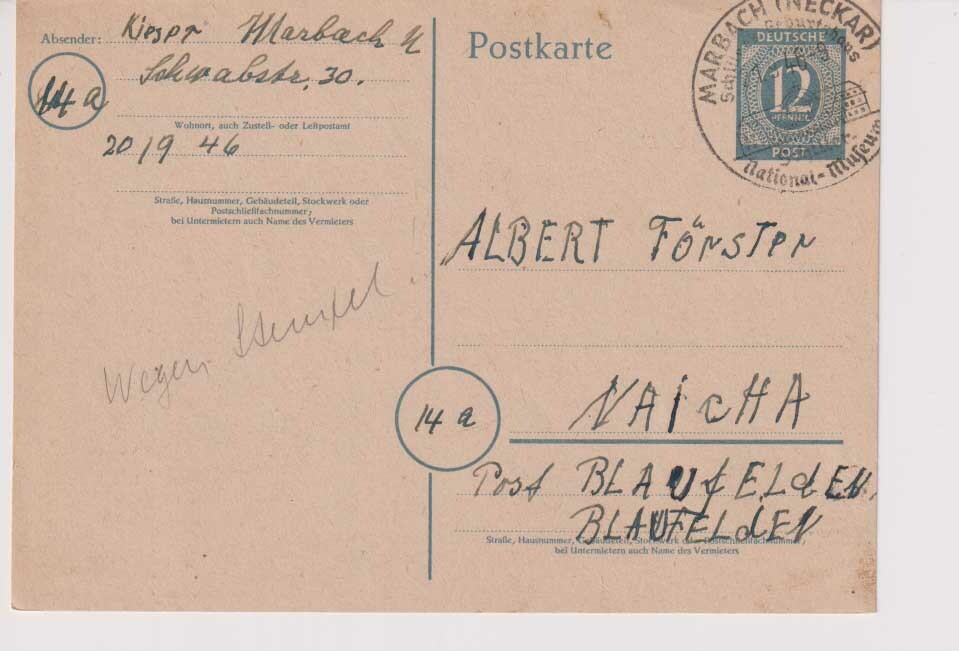 Absender: Kieser Marbach N
Schwabstr. 30.
14 a
Wohnort, auch Zustell- oder Leitpostamt
20 19 46
Straße, Hausnummer, Gebäudeteil, Stockwerk oder
Postschließfachnummer;
bei Untermietern auch Name des Vermieters
Wegen Stempel
Postkarte
MARBACH (NECKAR)
National-Museum
DEUTSCHE
12
PFENNIG
POST
ALBERT FÖRSTER
14 a
NAICHA
Post BLAUFELDEN
BLAUFELDEN
Straße, Hausnummer, Gebäudeteil, Stockwerk oder Postschließfachnummer;
bei Untermietern auch Name des Vermieters